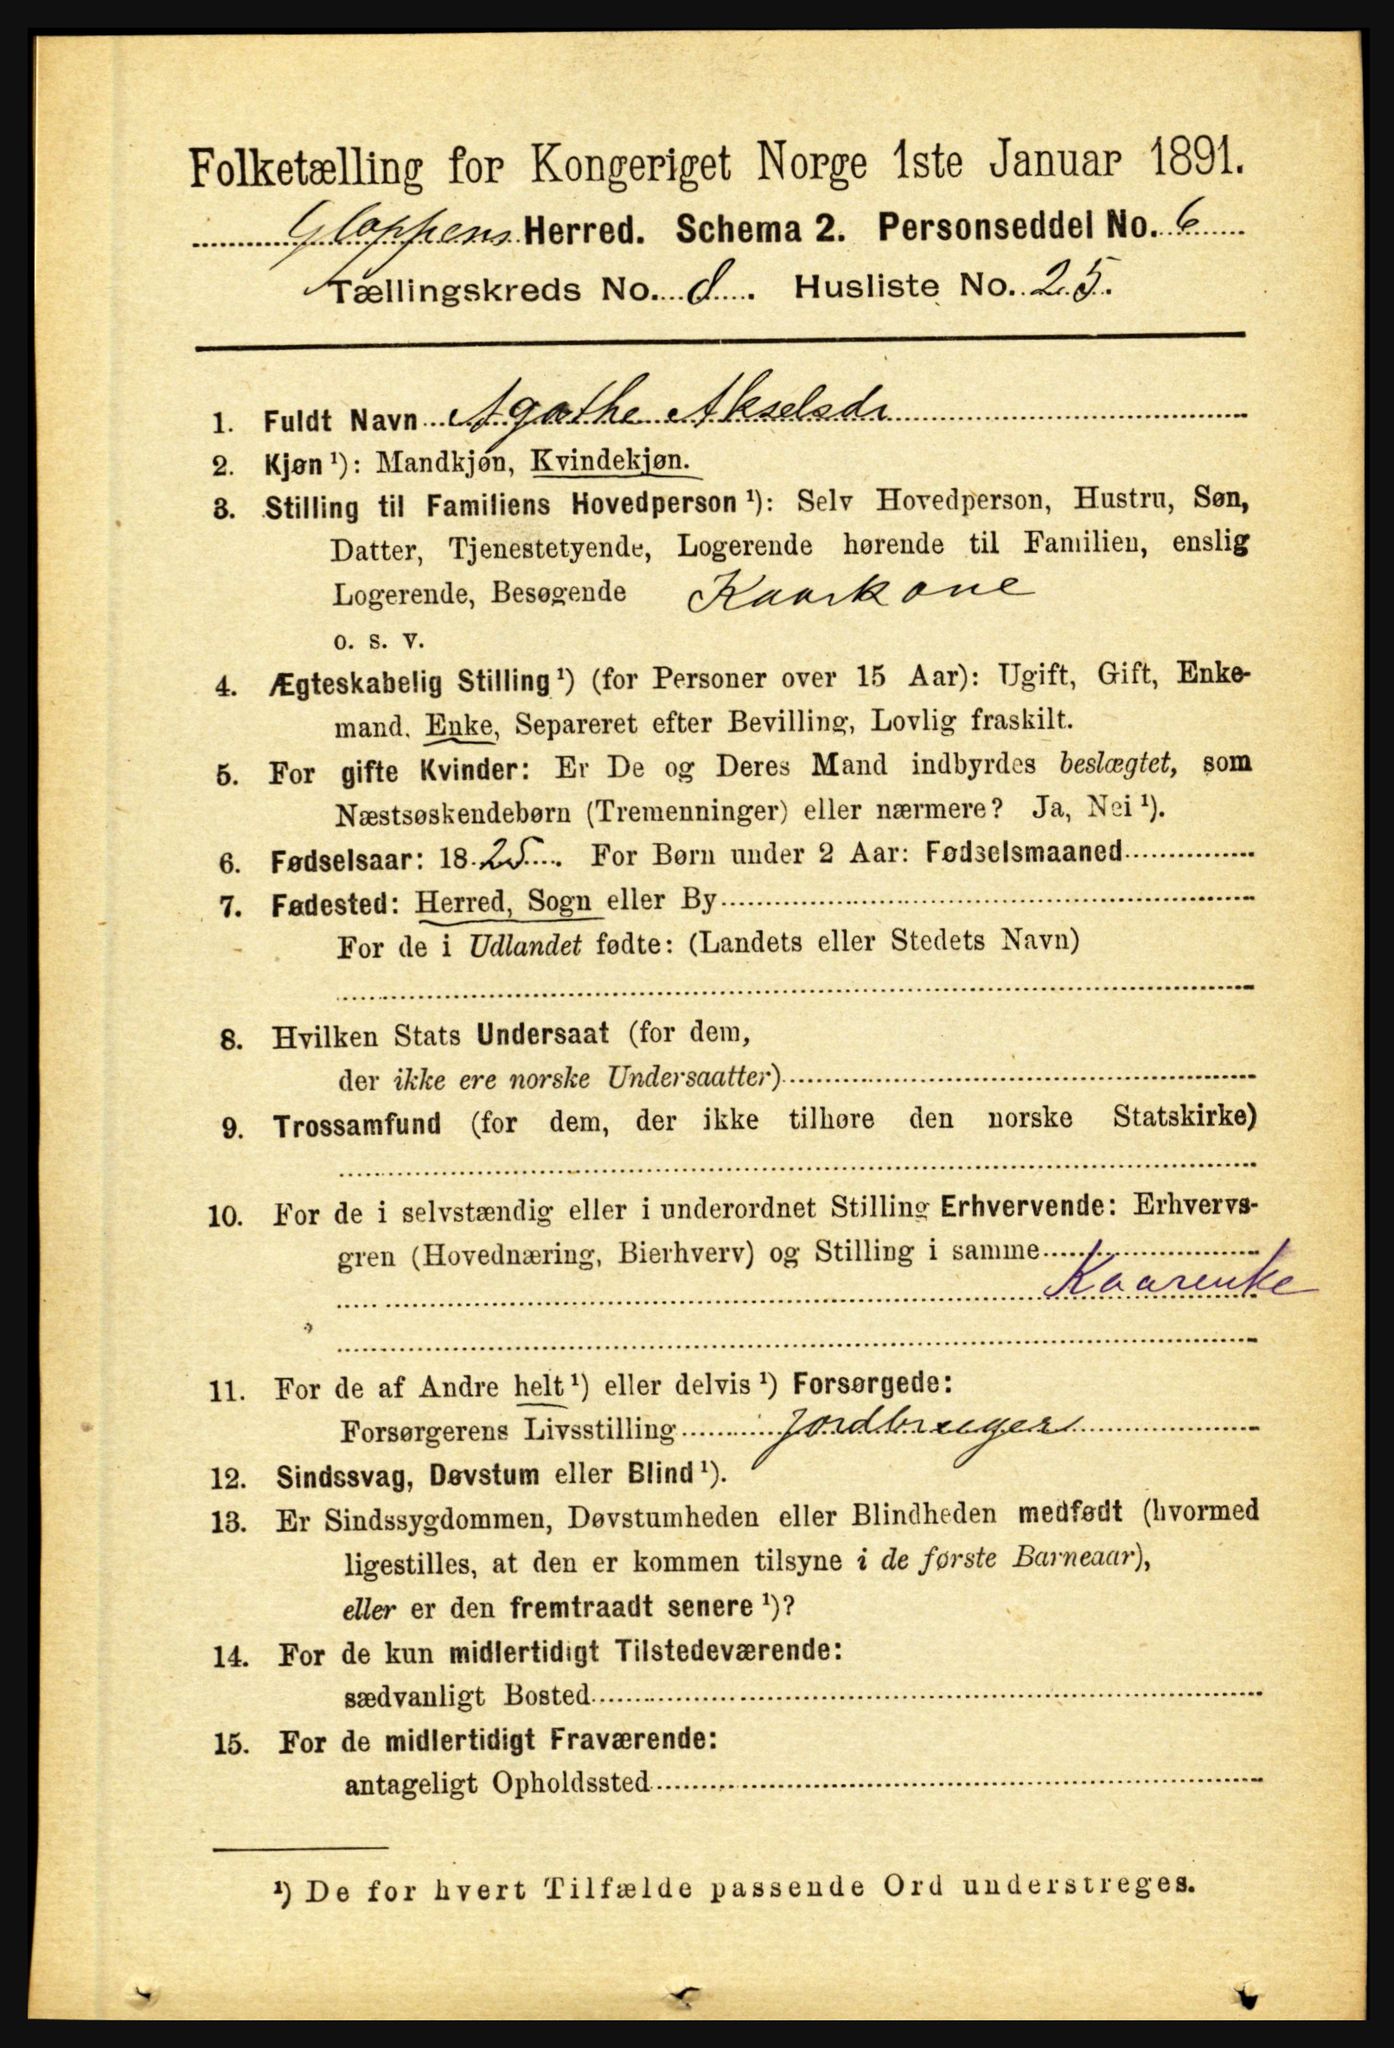 Folketælling for Kongeriget Norge 1ste Januar 1891.
Gloppens Herred. Schema 2. Personseddel No. 6
Tællingskreds No. 8. Husliste No. 25.
1. Fuldt Navn Agathe Akselsdr
2. Kjøn ¹): Mandkjøn, Kvindekjøn.
3. Stilling til Familiens Hovedperson ¹): Selv Hovedperson, Hustru, Søn,
Datter, Tjenestetyende, Logerende hørende til Familien, enslig
Logerende, Besøgende Kaarkone
o. s. v.
4. Ægteskabelig Stilling ¹) (for Personer over 15 Aar): Ugift, Gift, Enke-
mand, Enke, Separeret efter Bevilling, Lovlig fraskilt.
5. For gifte Kvinder: Er De og Deres Mand indbyrdes beslægtet, som
Næstsøskendebørn (Tremenninger) eller nærmere? Ja, Nei ¹).
6. Fødselsaar: 1825. For Børn under 2 Aar: Fødselsmaaned
7. Fødested: Herred, Sogn eller By
For de i Udlandet fødte: (Landets eller Stedets Navn)
8. Hvilken Stats Undersaat (for dem,
der ikke ere norske Undersaatter)
9. Trossamfund (for dem, der ikke tilhøre den norske Statskirke)
10. For de i selvstændig eller i underordnet Stilling Erhvervende: Erhvervs-
gren (Hovednæring, Bierhverv) og Stilling i samme
Kaarenke
11. For de af Andre helt ¹) eller delvis ¹) Forsørgede:
Forsørgerens Livsstilling Jordbruger
12. Sindssvag, Døvstum eller Blind ¹).
13. Er Sindssygdommen, Døvstumheden eller Blindheden medfødt (hvormed
ligestilles, at den er kommen tilsyne i de første Barneaar),
eller er den fremtraadt senere ¹)?
14. For de kun midlertidigt Tilstedeværende:
sædvanligt Bosted
15. For de midlertidigt Fraværende:
antageligt Opholdssted
¹) De for hvert Tilfælde passende Ord understreges.